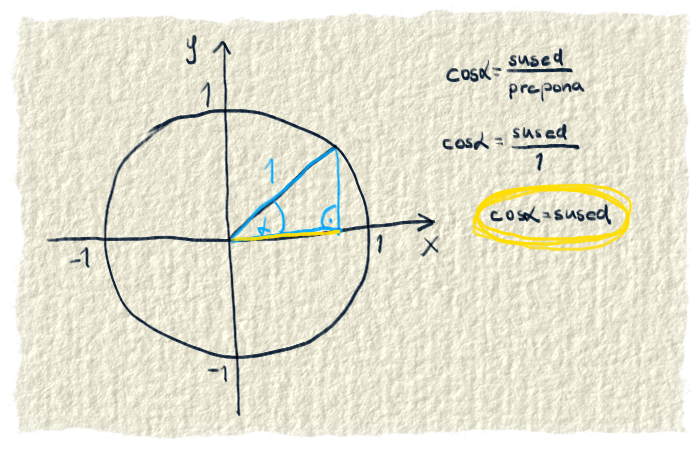 y
1
1
α
-1
1
x
-1
cosα = sused
prepona
cosα = sused
1
cosα = sused